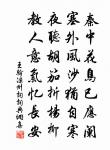 秦中花鳥已應闌
塞外風沙猶自寒
夜聽胡笳折楊柳
教人意氣憶長安
王翰涼州詞